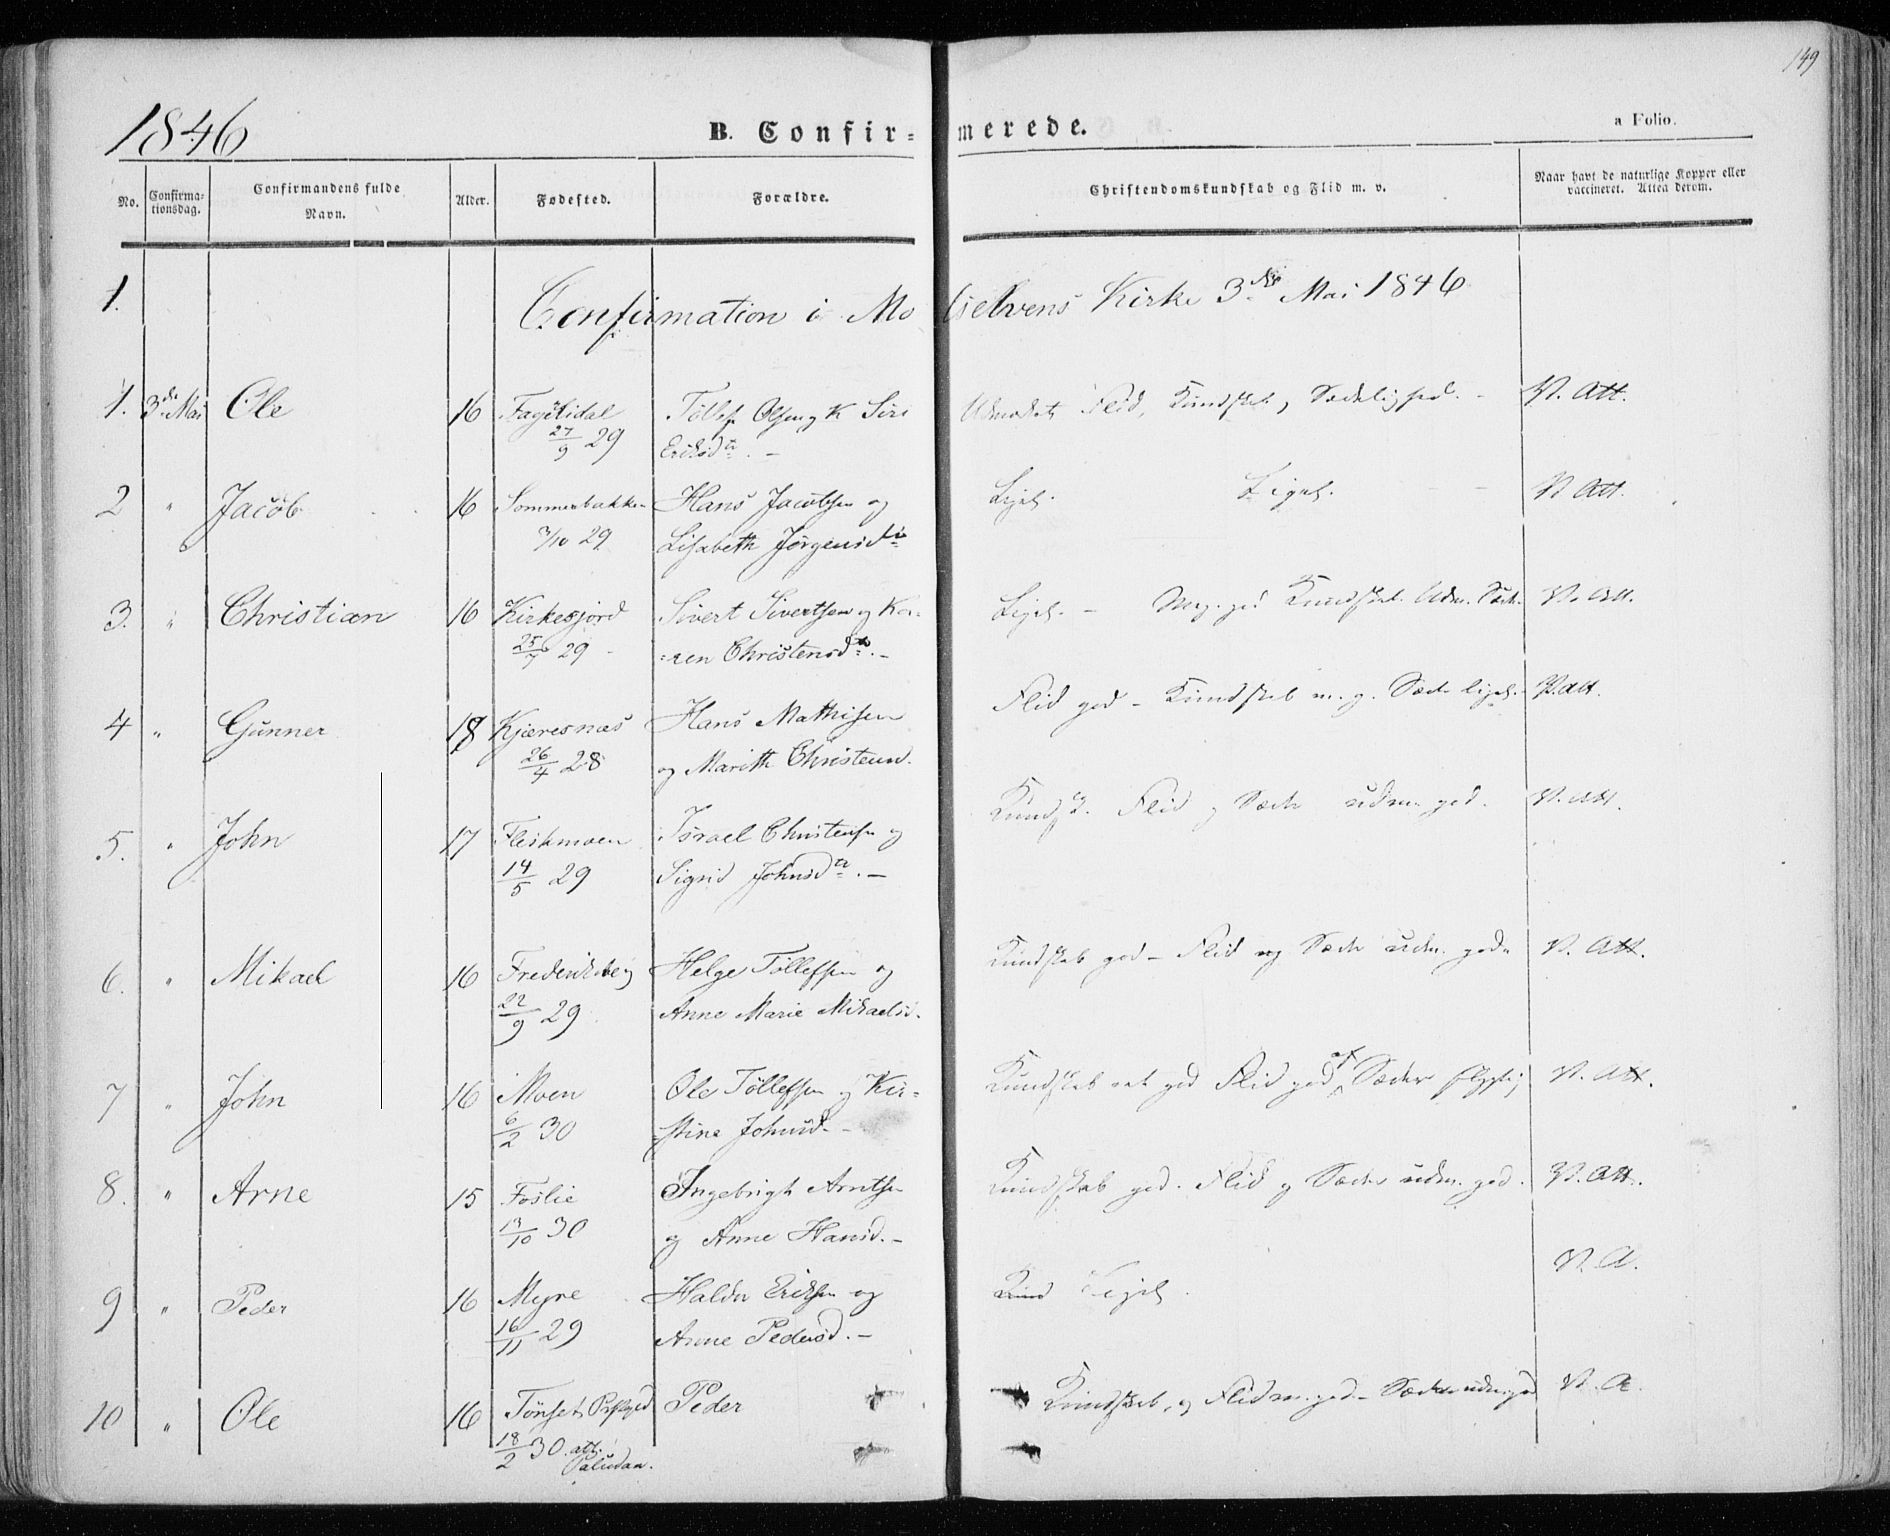 149
1846
B. Confir=merede.
a Folio.
No.
Confirma-
tionsdag.
Confirmandens fulde
Navn.
Alder.
Fødested.
Forældre.
Christendomskundskab og Flid m. v.
Naar havt de naturlige Kopper eller
vaccineret. Attea derom.
1.
Confirmation i Molselvens Kirke 3die Mai 1846
1. 3de Mai Ole 16 Tollef Olsen og K Siri Udmærket Flid, Kundskab, Sædelighed. - V. Att.
27/9 29 Eriksdtr. -
2 " Jacob 16 Sommerbakken Hans Jacobsen og Ligel. Ligel. - V Att.
3/10 29 Lisabeth Jørgensdtr
3. " Christian 16 Kirkesfjord Sivert Sivertsen og Ka- Ligel. - Meg. god Kundskab. Udm. Sæde. V. Att.
25/7 29 - :ren Christensdtr. -
4 " Gunner 18 Kjæresnæs Hans Mathisen Flid god - Kundskab m. g. Sæde ligel. - V. Att.
26/4 28 og Marith Christensd.
5. " John 17 Fleskmoen Israel Christensen og Kundsk. Flid og Sæde udm. god. V. Att.
14/5 29 Sigrid Johnsdtr. -
6. " Mikael 16 Frederiksberg Helge Tollefsen og Kundskab god - Flid og Sæde udm. gode V. Att.
22/9 29 Anne Marie Mikaelsd.
7 " John 16 Moen Ole Tollefsen og Kir= Kundskab ret god Flid god Sæder V. Att.
6/2 30 =stine Johnsd. -
8. " Arne 15 Foslie Ingebrigt Arntsen Kundskab god. Flid og Sæder udm. god. V. Att.
13/10 30 og Anne Hansd. -
9 " Peder 16 Myre Haldor Eriksen og Kund Ligel. V. A.
16/11 29 Anne Pedersd. -
10 " Ole 16 Tønset Præstegjed Peder Kundskab, og Flid m. god - Sæder udm. god V. A.
18/2 30. att. Paludan.